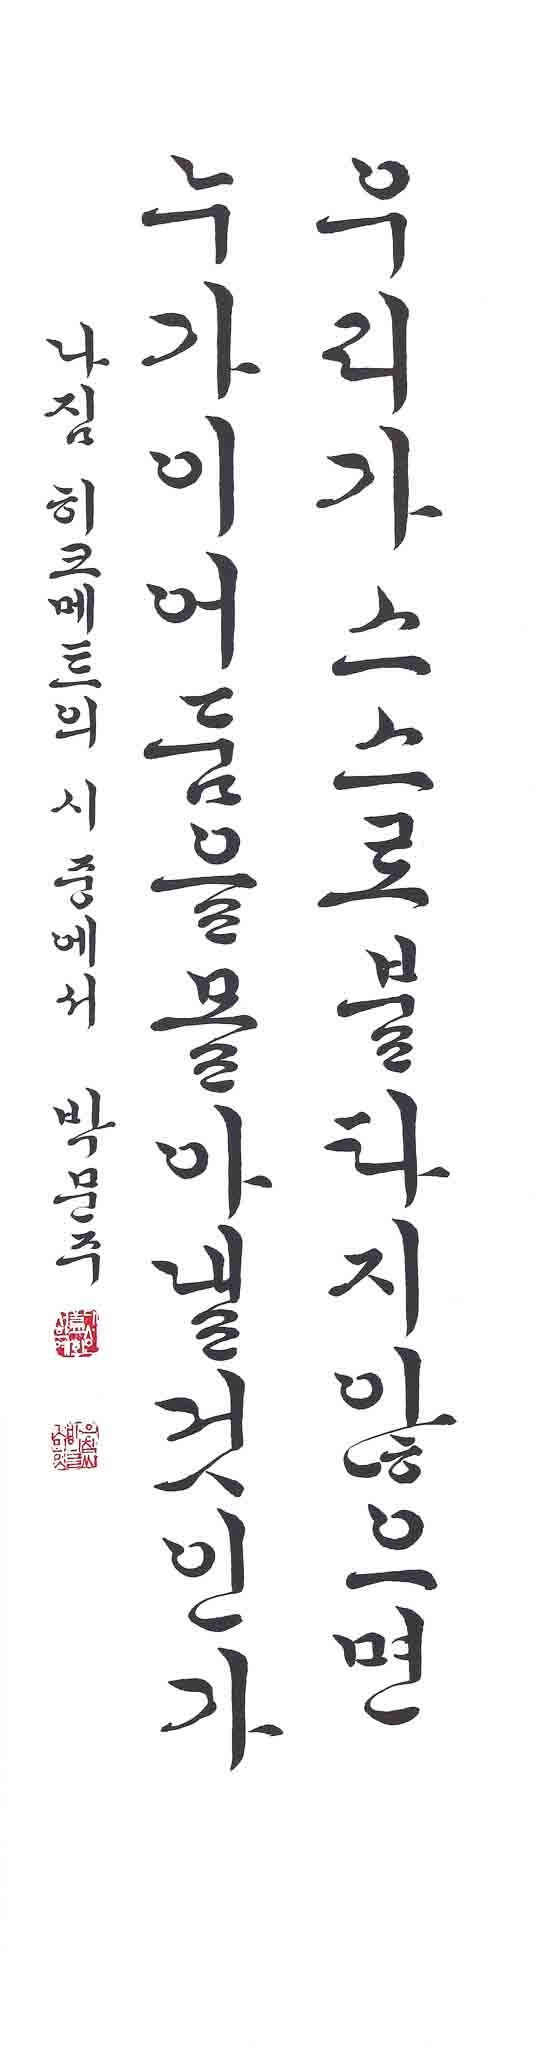 우리가 스스로 불타지 않으면
누가 이 어둠을 몰아낼 것인가
나짐 히크메트의 시 중에서 박문주